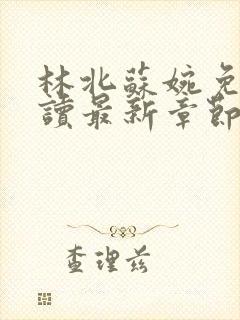 林北蘇婉免
讀最新章節
查理茲